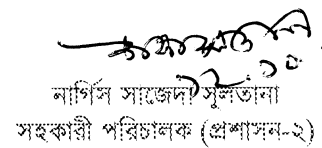 ১২.১০
নার্গিস সাজেদা সুলতানা
সহকারী পরিচালক (প্রশাসন-২)